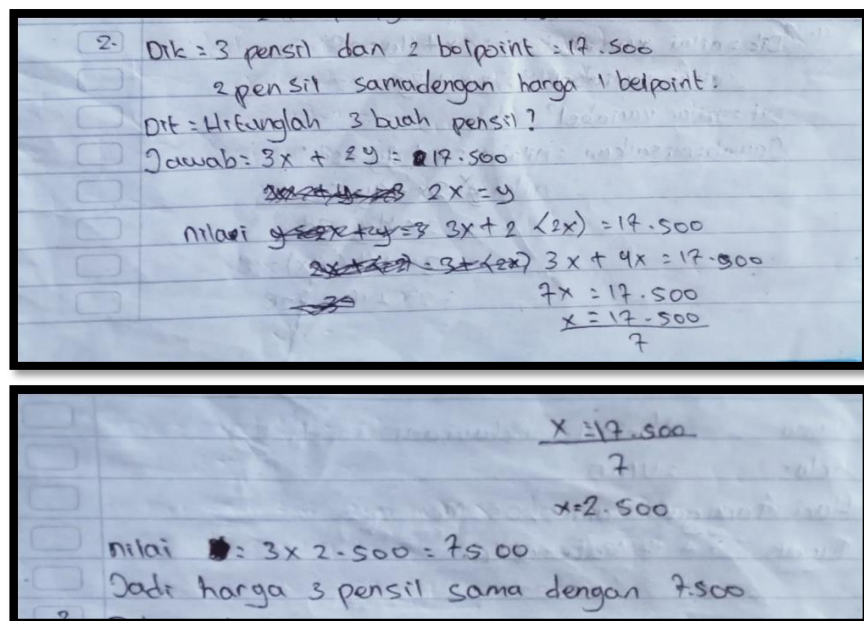 2. Dik = 3 pensil dan 2 bolpoint = 17.500
2 pensil samadengan harga 1 belpoint.
Dit = Hitunglah 3 buah pensil?
Jawab = 3x + 2y = 17.500
2x = y
nilai 3x + 2 (2x) = 17.500
3x + 4x = 17.500
7x = 17.500
x = 17.500
7
x = 17.500
7
x = 2.500
nilai : 3 x 2.500 = 7500
Jadi harga 3 pensil sama dengan 7.500